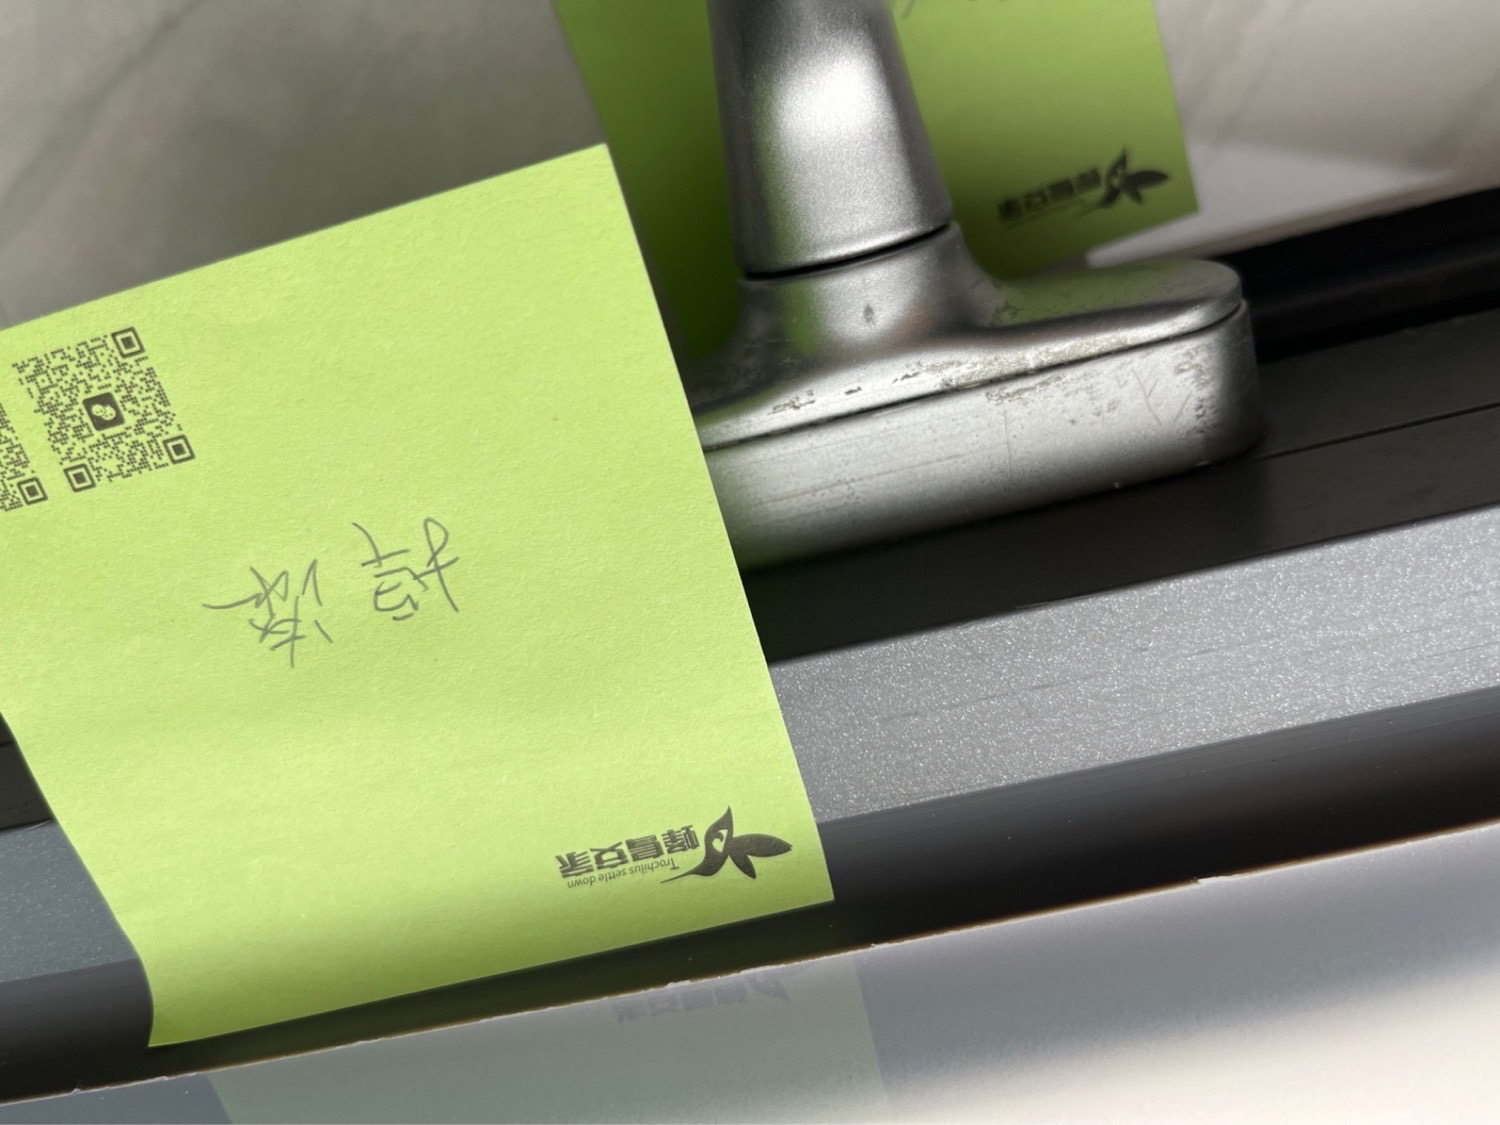 掉漆
蜂鳥安家
Trochilus settle down
蜂鳥安家